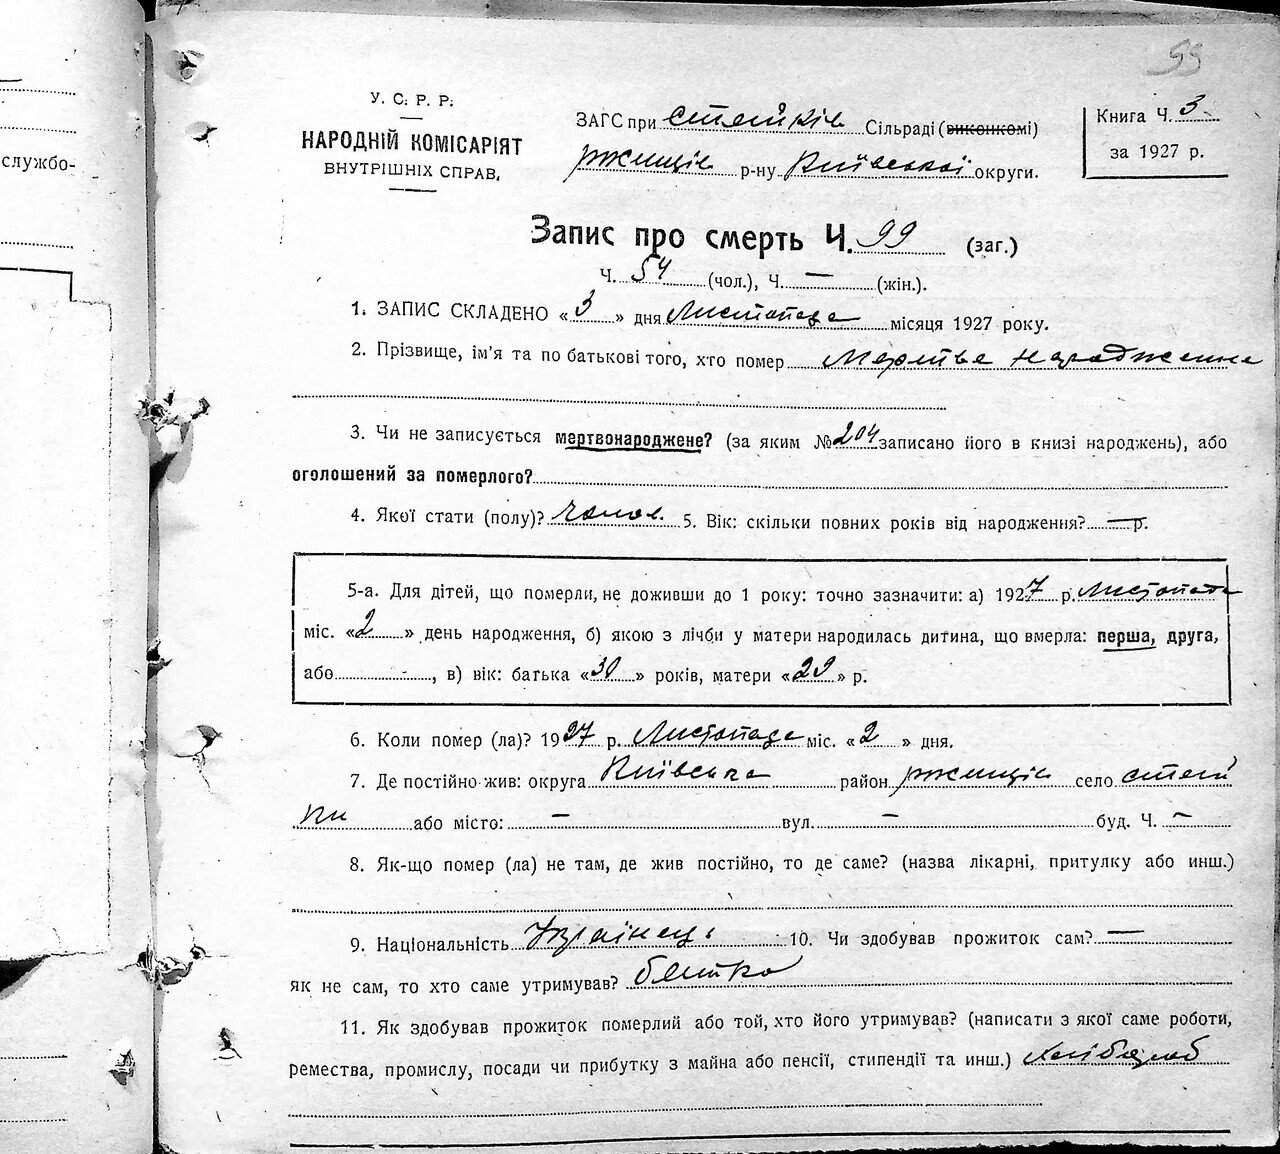 99
службо-
У. С. Р. Р.
НАРОДНІЙ КОМІСАРІЯТ
ВНУТРІШНІХ СПРАВ.
ЗАГС при Стайків Сільраді (виконкомі)
Ржищів р-ну Київської округи.
Книга Ч. 3
за 1927 р.
Запис про смерть Ч. 99 (заг.)
Ч. 54 (чол.), Ч. — (жін.).
1. ЗАПИС СКЛАДЕНО «3» дня Листопада місяця 1927 року.
2. Прізвище, ім'я та по батькові того, хто помер Мертве народження
3. Чи не записується мертвонароджене? (за яким № 204 записано його в книзі народжень), або
оголошений за померлого?
4. Якої стати (полу)? чолов. 5. Вік: скільки повних років від народження? — р.
5-а. Для дітей, що померли, не доживши до 1 року: точно зазначити: а) 1927 р. Листопада
міс. «2» день народження, б) якою з лічби у матери народилась дитина, що вмерла: перша, друга,
або , в) вік: батька «30» років, матери «29» р.
6. Коли помер (ла)? 1927 р. Листопада міс. «2» дня.
7. Де постійно жив: округа Київська район Ржищів село Стай
ки або місто: — вул. — буд. Ч. —
8. Як-що помер (ла) не там, де жив постійно, то де саме? (назва лікарні, притулку або инш.)
9. Національність Українець 10. Чи здобував прожиток сам? —
як не сам, то хто саме утримував? батько
11. Як здобував прожиток померлий або той, хто його утримував? (написати з якої саме роботи,
ремества, промислу, посади чи прибутку з майна або пенсії, стипендії та инш.) хлібороб